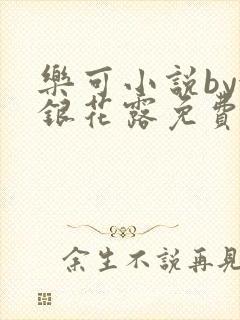 樂可小說by
銀花露免費
余生不說再見